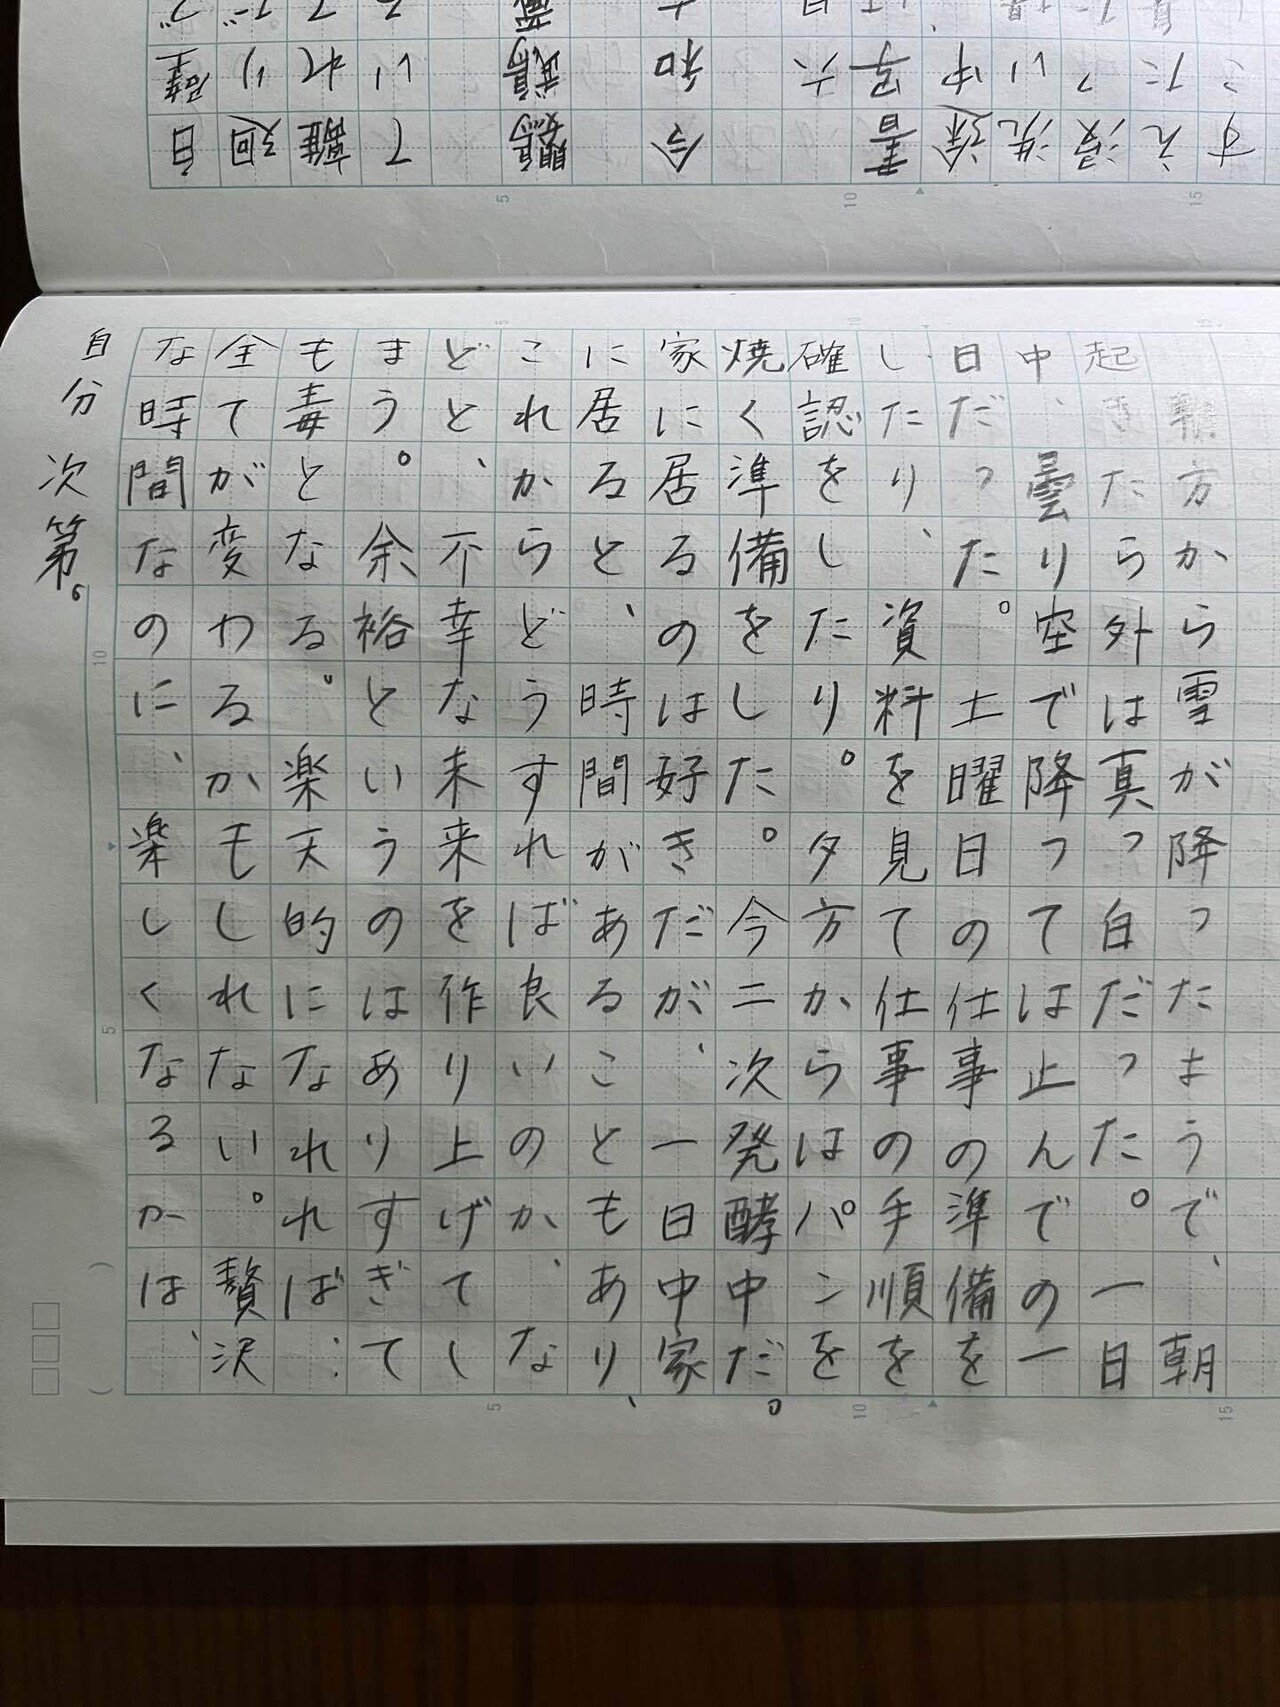 朝方から雪が降ったようで、朝
起きたら外は真っ白だった。一日
中、曇り空で降っては止んでの一
日だった。土曜日の仕事の準備を
したり、資料を見て仕事の手順を
確認をしたり。夕方からはパンを
焼く準備をした。今二次発酵中だ。
家に居るのは好きだが、一日中家
に居ると、時間があることもあり、
これからどうすれば良いのか、な
どと、不幸な未来を作り上げてし
まう。余裕というのはありすぎて
も毒となる。楽天的になれれば…
全てが変わるかもしれない。贅沢
な時間なのに、楽しくなるかは、
自分次第。